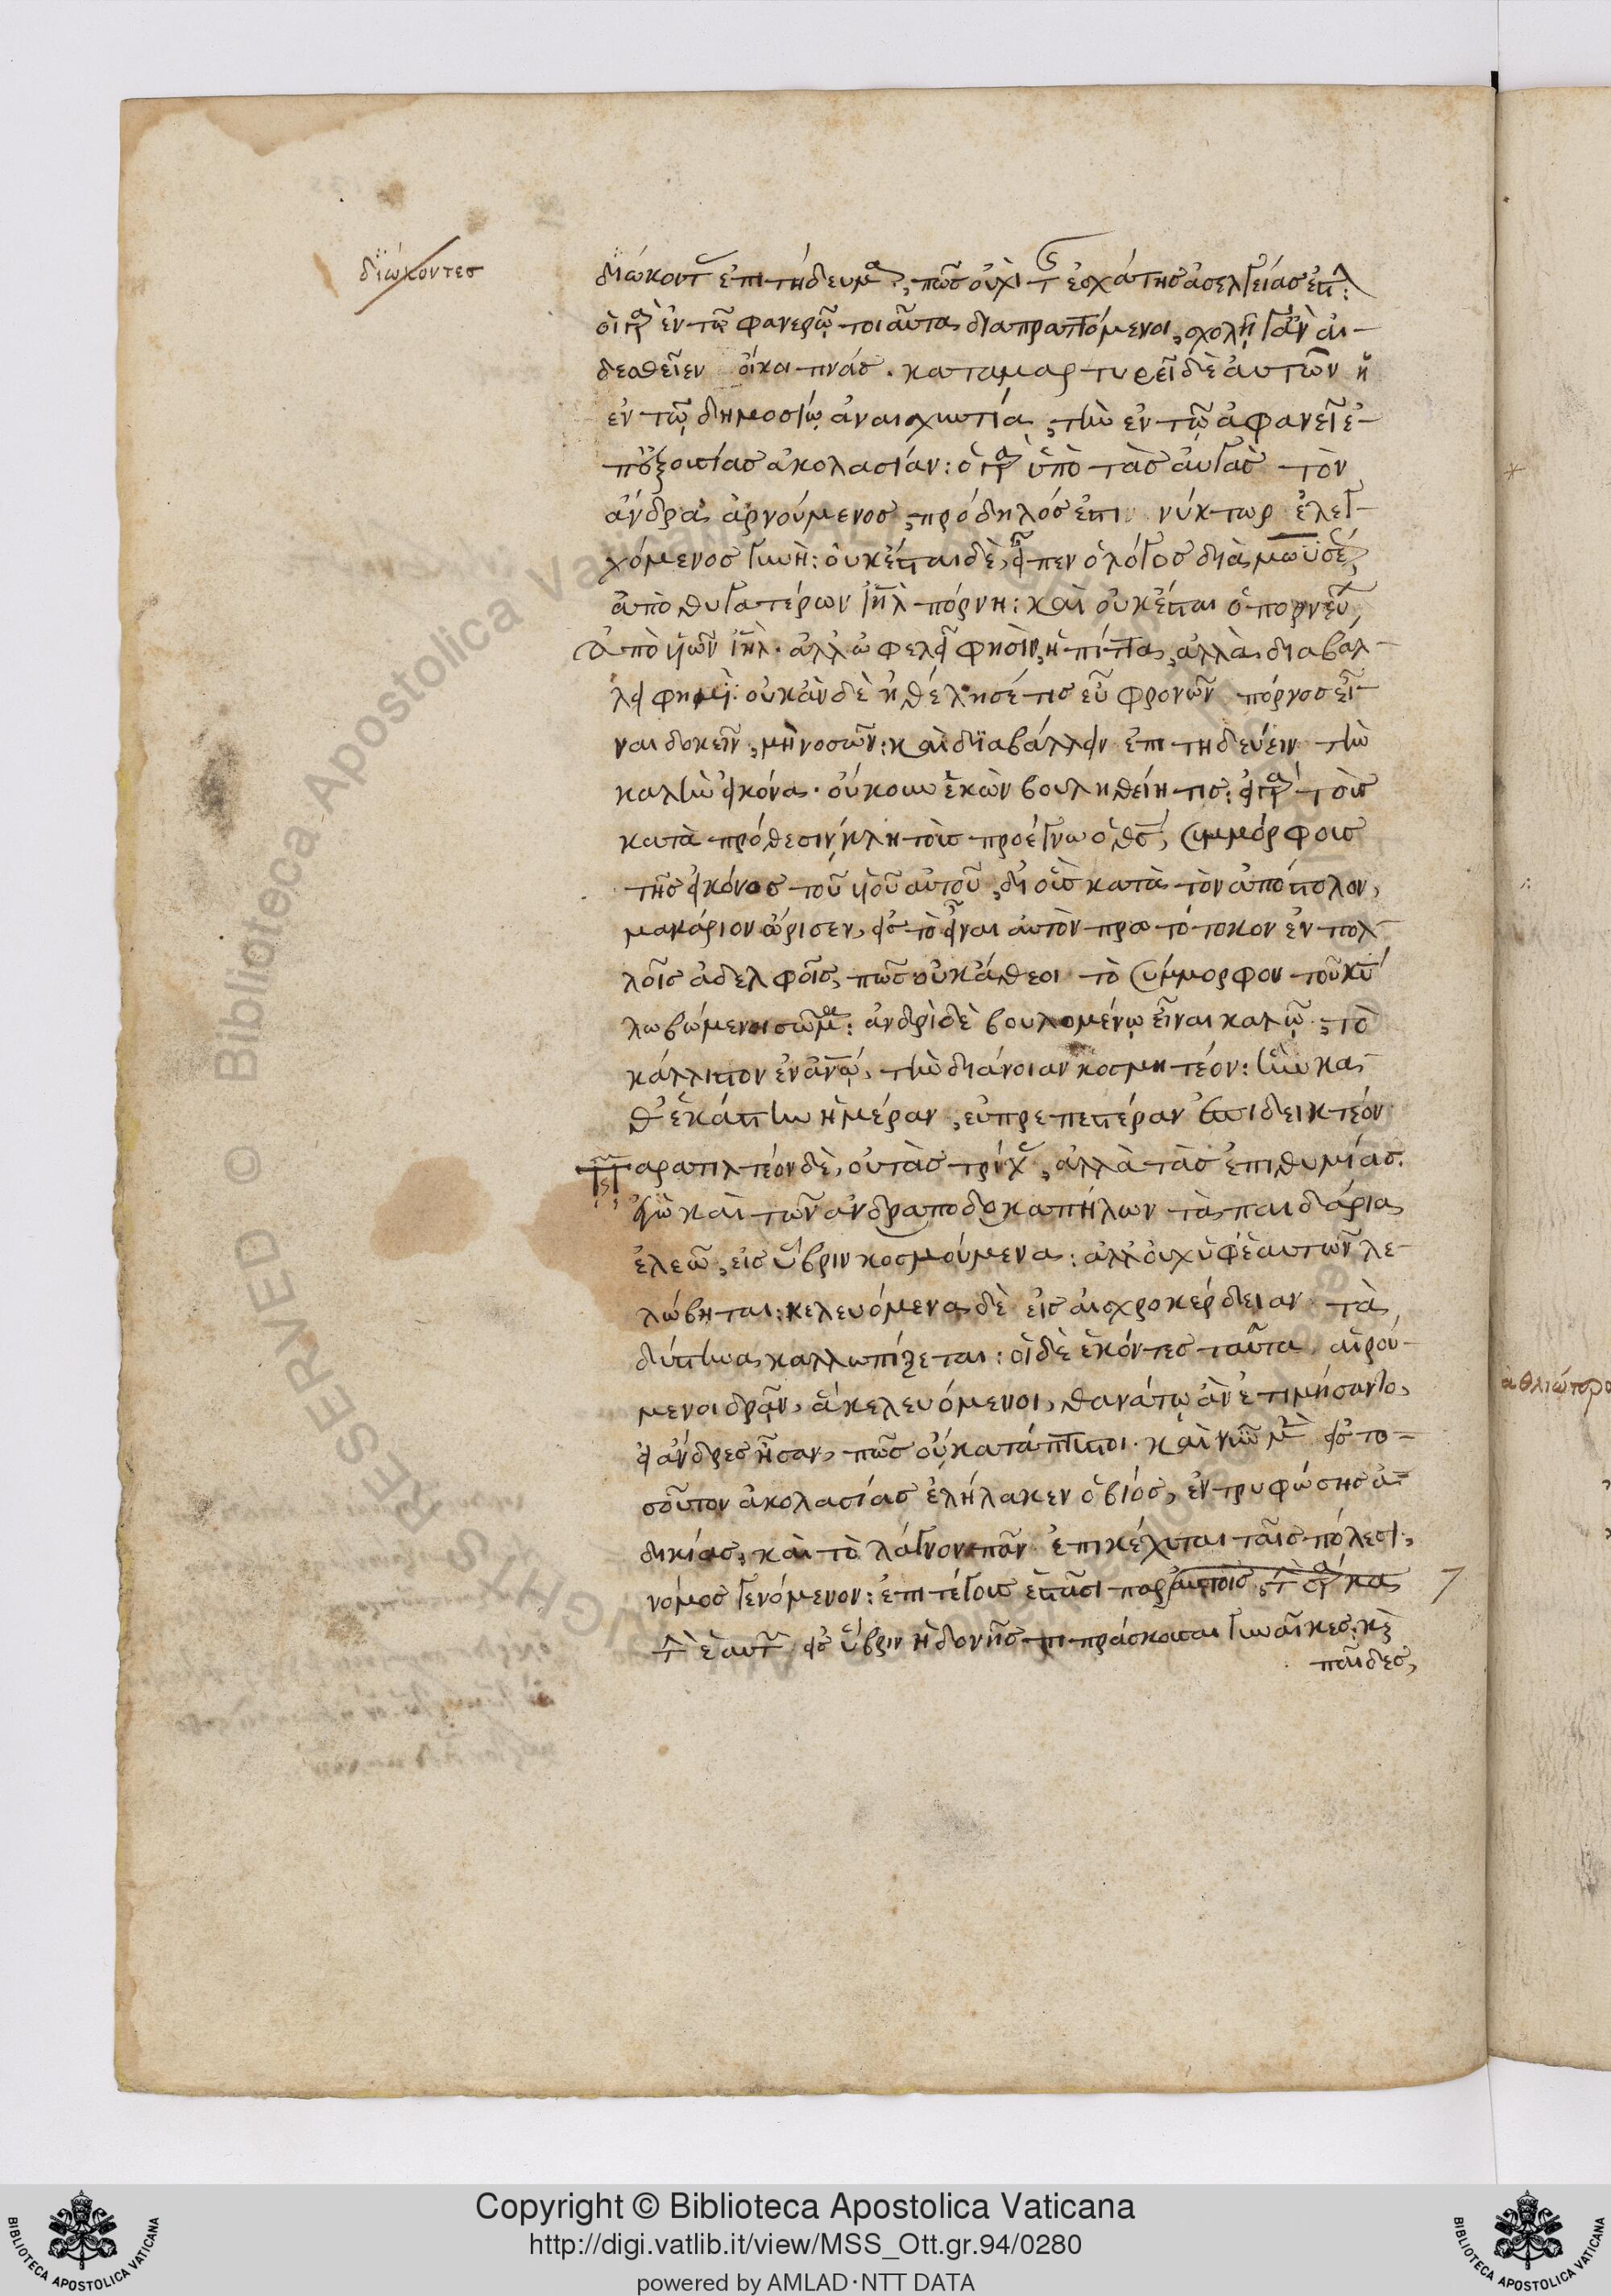 διώκοντες
διώκοντ ἐπιτήδευμα, πῶς οὐχὶ τ ἐσχάτης ἀσελγείας ἐστ:
οἱ γὰρ ἐν τῶ φανερῶ τοιαῦτα διαπραττόμενοι, σχολῇ γ' ἂν αἰ-
δεσθεῖεν οἴκοι τινάς. καταμαρτυρεῖ δὲ ἀυτῶν ἡ
ἐν τῶ δημοσίῳ ἀναισχυντία, τὴν ἐν τῶ ἀφανεῖ ἐ-
π' ἐξουσίας ἀκολασίαν: ὁ γὰρ ὑπὸ τὰς ἀυγὰς τὸν
ἄνδρα ἀρνούμενος, πρόδηλός ἐστι νύκτωρ ἐλεγ-
χόμενος γυνή: οὐκ ἔσται δὲ, εἶπεν ὁ λόγος διὰ μωϋσέ,
ἀπὸ θυγατέρων ιηλ πόρνη: καὶ οὐκ ἔσται ὁ πορνεύ,
ἀπὸ υἱῶν ιηλ. ἀλλ' ὠφελεῖ φησὶν, ἡ πίττα, ἀλλὰ διαβάλ-
λει φημί. οὐκ ἂν δὲ ἠθέλησέ τις εὖ φρονῶν πόρνος εἶ-
ναι δοκεῖν, μὴ νοσῶν: καὶ διαβάλλειν ἐπιτηδεύειν τὴν
καλὴν εἰκόνα. οὔκουν ἑκὼν βουληθείη τις: εἰ γὰρ τοὺς
κατὰ πρόθεσιν κλητοὺς προέγνω ὁ θς, συμμόρφους
τῆς εἰκόνος τοῦ υἱοῦ αὐτοῦ, δι' οὓς κατὰ τὸν ἀπόστολον,
μακάριον ὥρισεν, εἰς τὸ εἶναι αὐτὸν πρωτότοκον ἐν πολ-
λοῖς ἀδελφοῖς, πῶς οὐκ ἄθεοι τὸ σύμμορφον τοῦ κυ
λωβώμενοι σῶμα: ἀνδρὶ δὲ βουλομένῳ εἶναι καλῶ, τὸ
κάλλιστον ἐν ἀνω, τὴν διάνοιαν κοσμητέον: ἣν κα-
θ' ἑκάστην ἡμέραν, εὐπρεπεστέραν ἐπιδεικτέον
παρατιλτέον δὲ, οὐ τὰς τρίχ, ἀλλὰ τὰς ἐπιθυμίας.
ἐγὼ καὶ τῶν ἀνδραποδοκαπήλων τὰ παιδάρια
ἐλεῶ, εἰς ὕβριν κοσμούμενα: ἀλλ' οὐχ ὑφ' ἑαυτῶν λε-
λώβηται: κελευόμενα δὲ εἰς αἰσχροκέρδειαν τὰ
δύστηνα καλλωπίζεται: οἱ δὲ ἑκόντες ταῦτα αἱρού-
μενοι δρᾶν, ἃ κελευόμενοι, θανάτῳ ἂν ἐτιμήσαντο,
εἰ ἄνδρες ἦσαν, πῶς οὐ κατάπτυστοι. καὶ νῦν μὲν εἰς το-
σοῦτον ἀκολασίας ἐλήλακεν ὁ βίος, ἐντρυφώσης ἀ-
δικίας, καὶ τὸ λάγνον πᾶν ἐπικέχυται ταῖς πόλεσι,
νόμος γενόμενον: ἐπὶ τέγους ἑστᾶσι παρ' αὐτοῖς, τ σάρκα
τ ἑαυτ εἰς ὕβριν ἡδονῆς πιπράσκουσαι γυναῖκες, κ
παῖδες,
ἀθλιώτερο
Copyright © Biblioteca Apostolica Vaticana
http://digi.vatlib.it/view/MSS_Ott.gr.94/0280
powered by AMLAD·NTT DATA
BIBLIOTECA APOSTOLICA VATICANA
BIBLIOTECA APOSTOLICA VATICANA